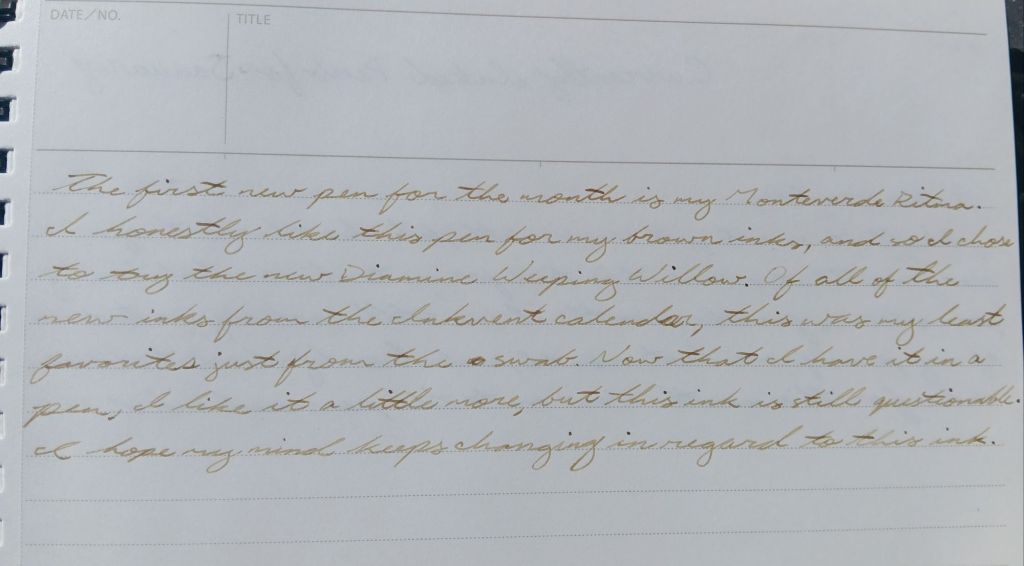 DATE/NO.
TITLE
Currently Inked Pens for January
The first new pen for the month is my Monteverde Ritma.
I honestly like this pen for my brown inks, and so I chose
to try the new Diamine Weeping Willow. Of all of the
new inks from the Inkvent calendar, this was my least
favorites just from the swab. Now that I have it in a
pen, I like it a little more, but this ink is still questionable.
I hope my mind keeps changing in regard to this ink.